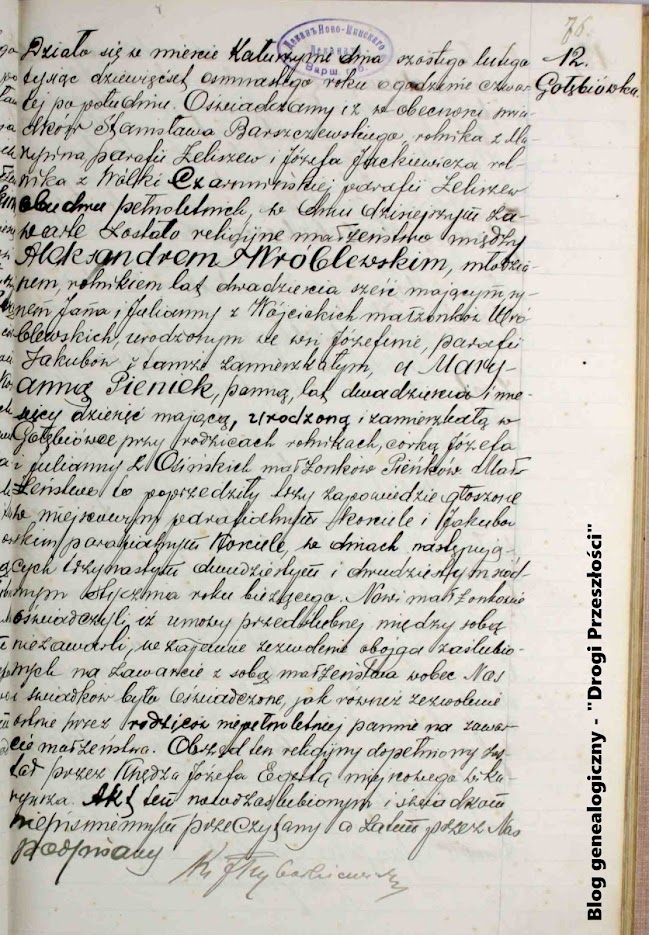 76.
12.
Gołębiówka.
Działo się w mieście Kałuszynie dnia szóstego lutego
tysiąc dziewięćset osmnastego roku o godzinie czwar-
tej po południu. Oświadczamy iż w obecności świa-
dków Stanisława Barszczewskiego, rolnika z
parafii Żeliszew i Józefa Jackiewicza rol-
nika z Wólki Czarnińskiej parafii Żeliszew
obudwu pełnoletnych, w dniu dzisiejszym za-
warte zostało religijne małżeństwo między
Aleksandrem Wróblewskim, młodzia-
nem, rolnikiem lat dwadzieścia sześć mającym, sy-
nem Jana i Julianny z Wójcickich małżonków Wró-
blewskich, urodzonym we wsi Józefinie, parafii
Jakubów i tamże zamieszkałym, a Mary-
anną Pieniek, panną, lat dwadzieścia i mie-
sięcy dziewięć mającą, urodzoną i zamieszkałą w
Gołębiówce przy rodzicach rolnikach, córką Józefa
i Julianny z Osińskich małżonków Pieńków. Mał-
żeństwo to poprzedziły trzy zapowiedzie głoszone
w miejscowym parafialnym Kościele i Jakubo-
wskim parafialnym Kościele, w dniach następują-
cych trzynastym dwudziestym i dwudziestym siód-
mym stycznia roku bieżącego. Nowi małżonkowie
oświadczyli, iż umowy przedślubnej między sobą
nie zawarli, wzajemne zezwolenie obojga zaślubio-
nych na zawarcie z sobą małżeństwa wobec Nas
i świadków było oświadczone, jak również zezwolenie
ustne przez rodziców niepełnoletniej pannie na zawar-
cie małżeństwa. Obrzęd ten religijny dopełniony zos-
tał przez Księdza Józefa miejscowego wika-
ryusza. Akt ten nowozaślubionym i świadkom
niepiśmiennym przeczytany a zatem przez Nas
podpisany
Blog genealogiczny - "Drogi Przeszłości"